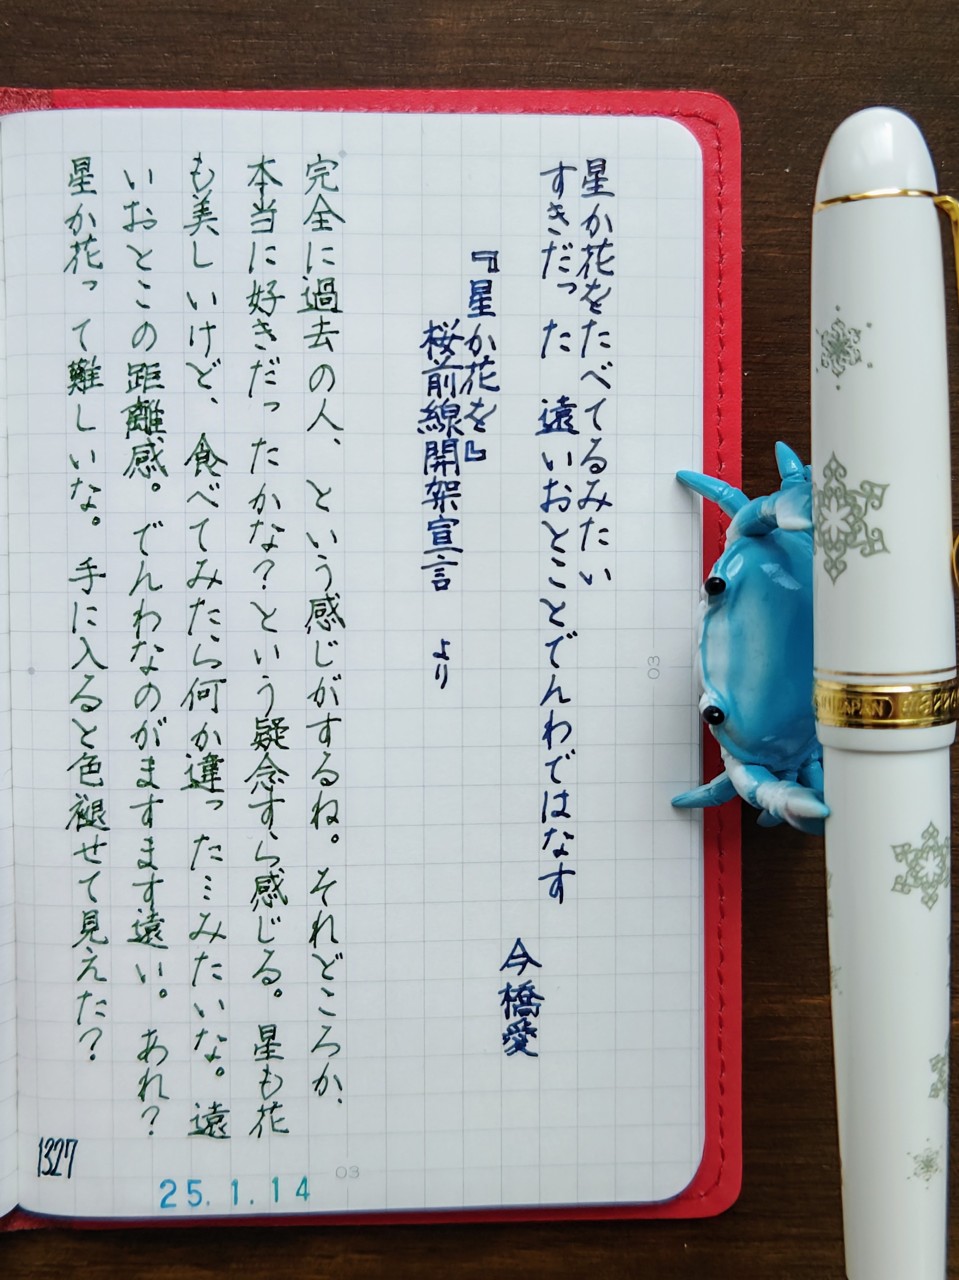 星か花をたべてるみたい
すきだった 遠いおとことでんわではなす
今橋愛
『星か花を』
桜前線開架宣言 より
完全に過去の人、という感じがするね。それどころか、
本当に好きだったかな？という疑念すら感じる。星も花
も美しいけど、食べてみたら何か違った…みたいな。遠
いおとこの距離感。でんわなのがますます遠い。あれ？
星か花って難しいな。手に入ると色褪せて見えた？
1327
25.1.14
03
03
JAPAN